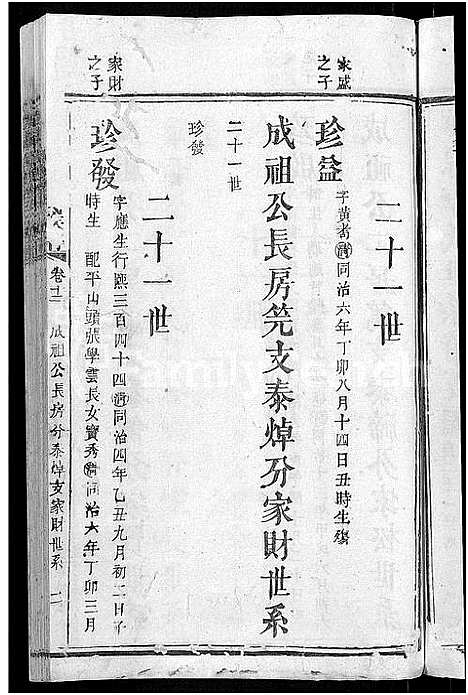 二十一世
家盛之子
珍益
字黃耇淸同治六年丁卯八月十四日丑時生殤
成祖公長房筦支泰焯分家財世系
二十一世
珍發
二十一世
家財之子
珍發
字應生行熙三百四十四淸同治四年乙丑九月初二日子
時生 配平山頭張學雲長女寶秀淸同治六年丁卯三月
卷十二 成祖公長房分泰焯支家財世系 二